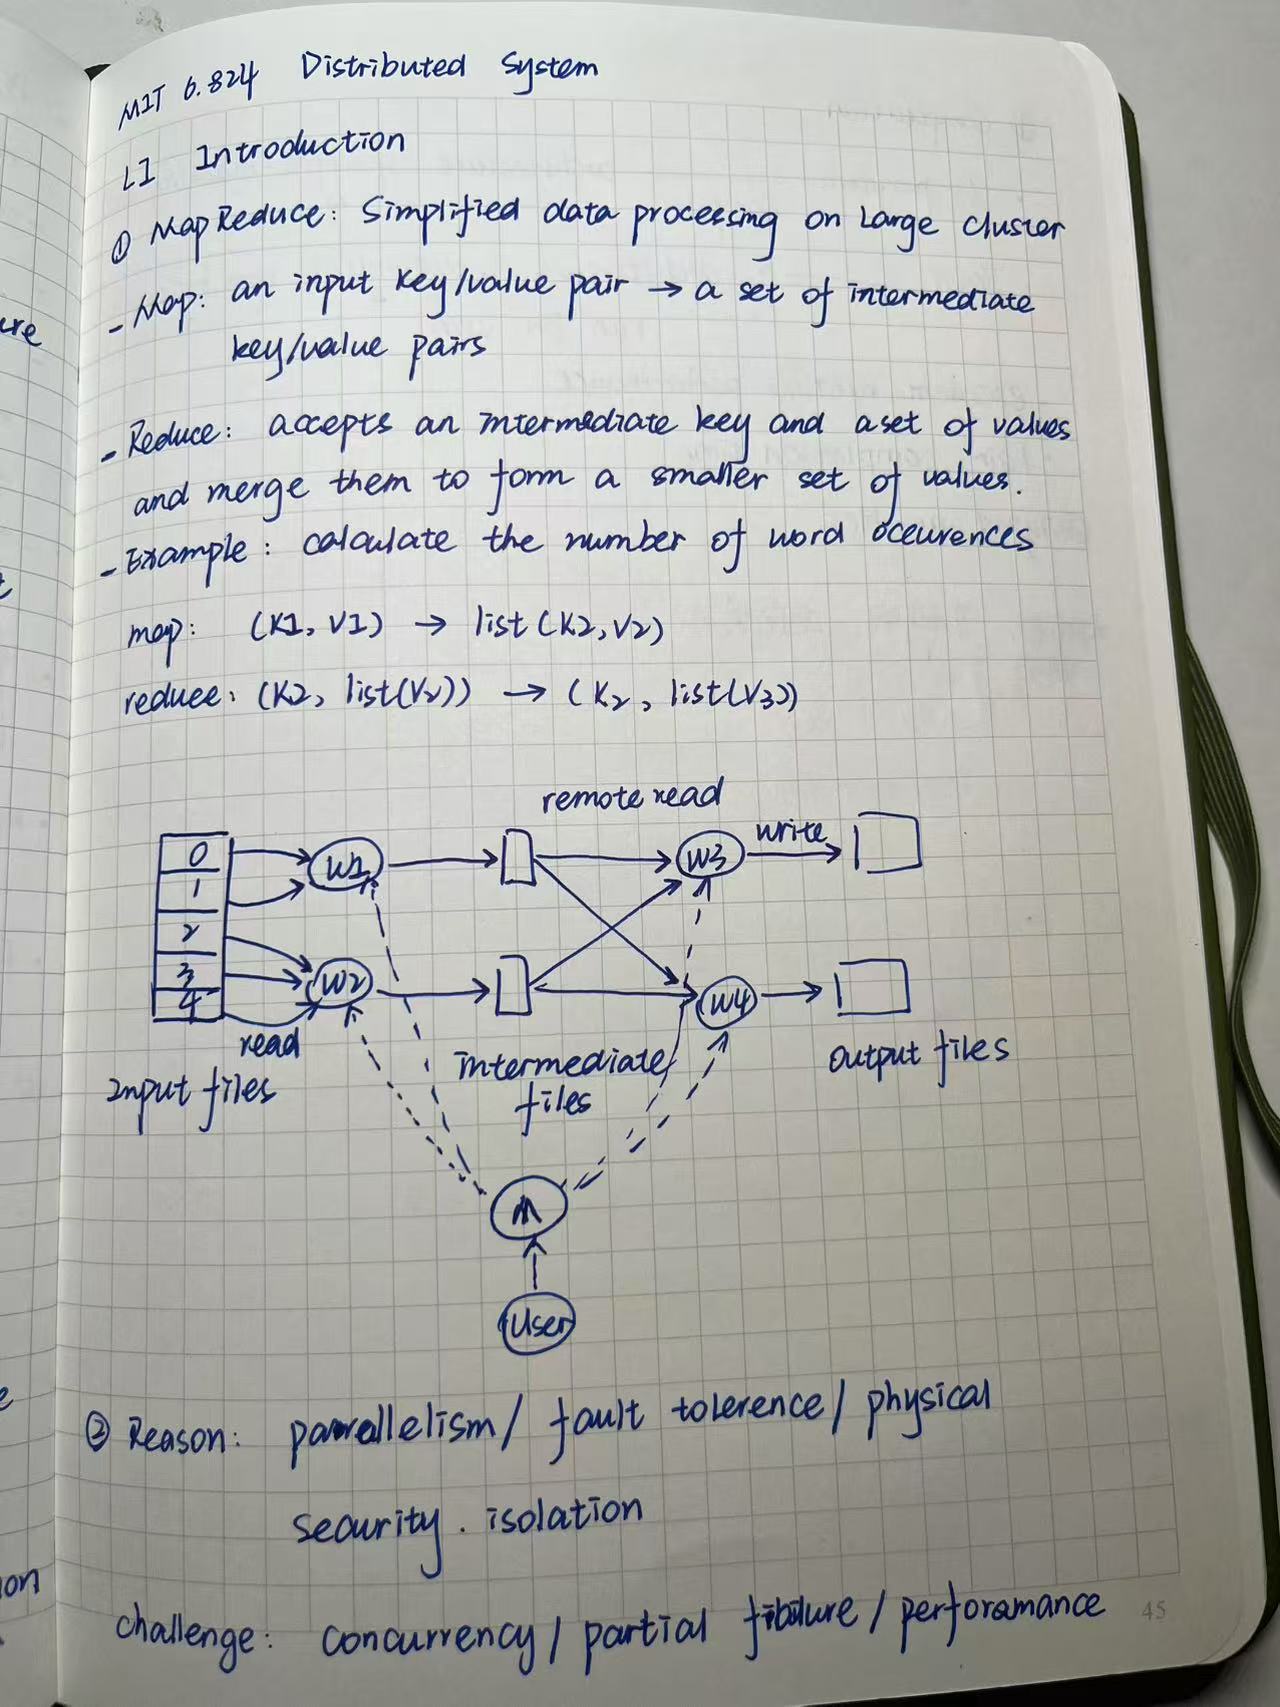 MIT 6.824 Distributed System
L1 Introduction
① MapReduce: Simplified data processing on Large cluster
- Map: an input key/value pair → a set of intermediate
key/value pairs
- Reduce: accepts an intermediate key and a set of values
and merge them to form a smaller set of values.
- Example: calculate the number of word oceurences
map: (K1, V1) → list(K2, V2)
reduce: (K2, list(V2)) → (K2, list(V3))
remote read
0
W1
W3
write
1
2
3
W2
W4
4
read
intermediate
files
output files
Input files
M
User
② Reason: parallelism / fault tolerence / physical
security. isolation
challenge: concurrency / partial / perforamance
45
ure
on